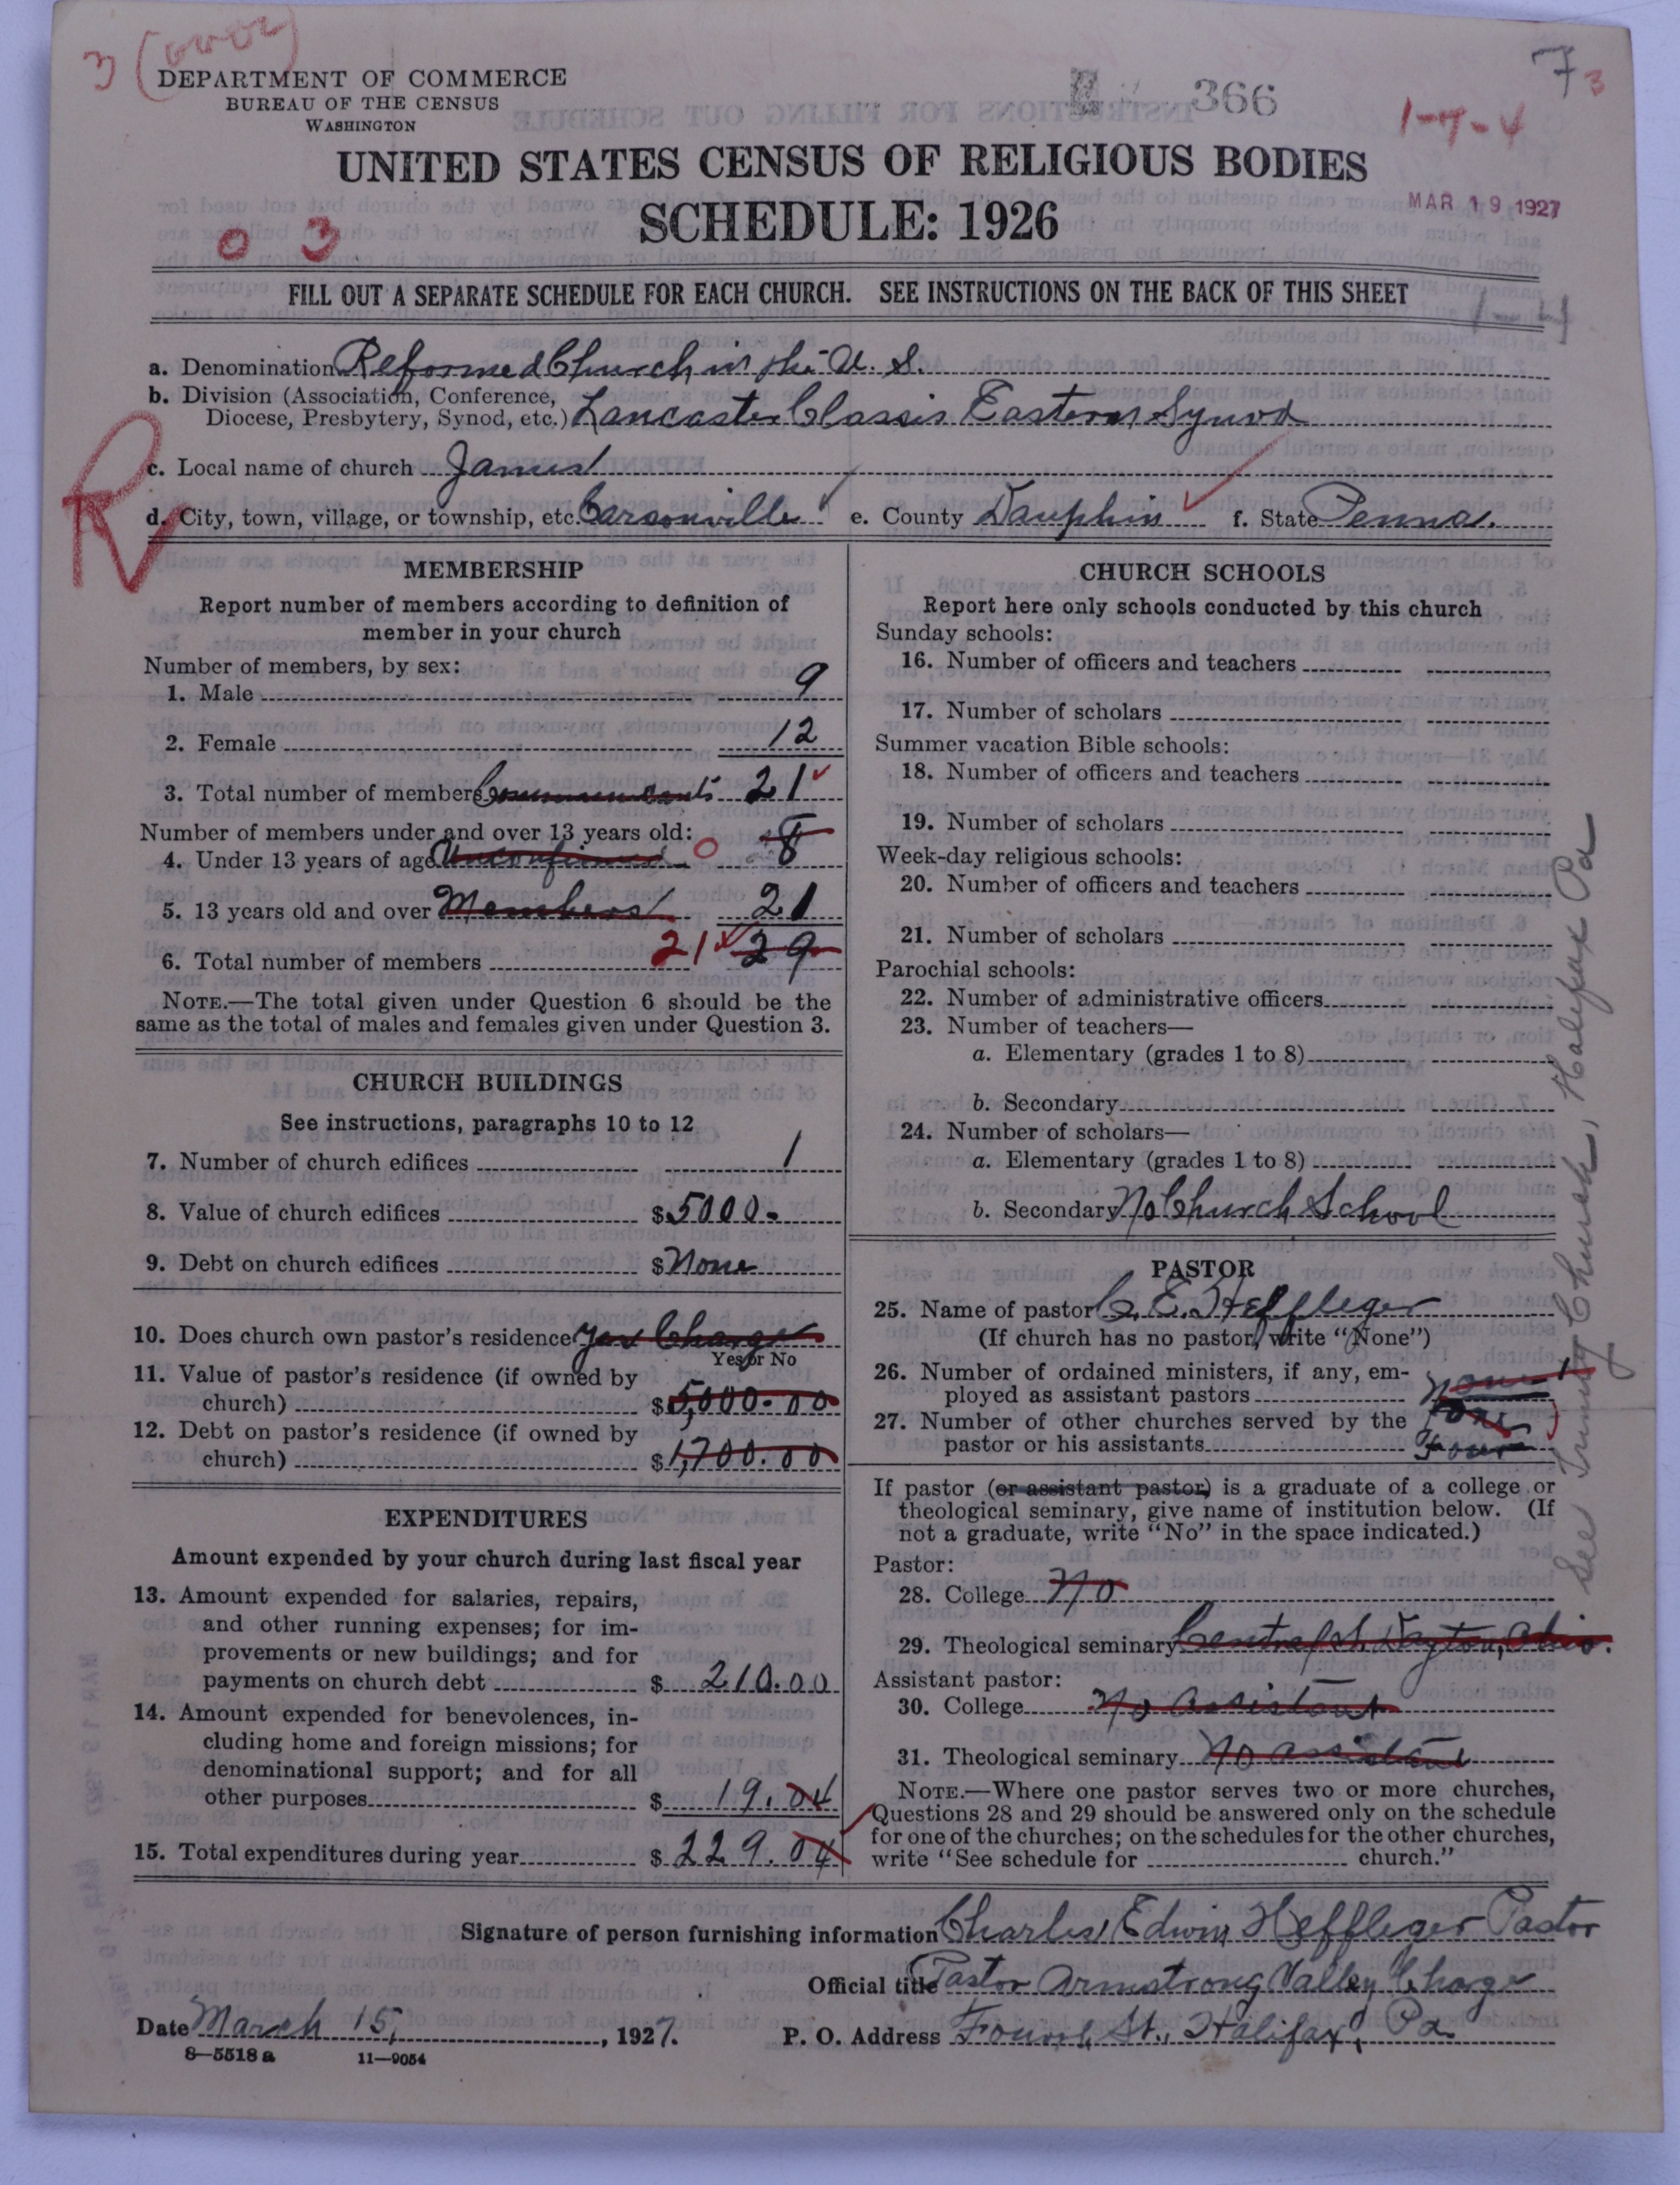 3 (over)
DEPARTMENT OF COMMERCE
BUREAU OF THE CENSUS
WASHINGTON
366
7 3
1-7-4
UNITED STATES CENSUS OF RELIGIOUS BODIES
SCHEDULE: 1926
MAR 19 1927
0 3
FILL OUT A SEPARATE SCHEDULE FOR EACH CHURCH. SEE INSTRUCTIONS ON THE BACK OF THIS SHEET
a. Denomination Reformed Church in the U. S.
b. Division (Association, Conference,
Diocese, Presbytery, Synod, etc.) Lancaster Classis Eastern Synod
c. Local name of church James
d. City, town, village, or township, etc. Carsonville e. County Dauphin f. State Penna.
R
MEMBERSHIP
Report number of members according to definition of
member in your church
Number of members, by sex:
1. Male 9
2. Female 12
3. Total number of members Communicants 21
Number of members under and over 13 years old:
4. Under 13 years of age Unconfirmed 0 8
5. 13 years old and over Members 21
6. Total number of members 21 29
NOTE.—The total given under Question 6 should be the
same as the total of males and females given under Question 3.
CHURCH BUILDINGS
See instructions, paragraphs 10 to 12
7. Number of church edifices 1
8. Value of church edifices $5000.
9. Debt on church edifices $None
10. Does church own pastor's residence Yes Charge
Yes or No
11. Value of pastor's residence (if owned by
church) $5,000.00
12. Debt on pastor's residence (if owned by
church) $1,700.00
EXPENDITURES
Amount expended by your church during last fiscal year
13. Amount expended for salaries, repairs,
and other running expenses; for im-
provements or new buildings; and for
payments on church debt $ 210.00
14. Amount expended for benevolences, in-
cluding home and foreign missions; for
denominational support; and for all
other purposes $ 19.04
15. Total expenditures during year $ 229.04
CHURCH SCHOOLS
Report here only schools conducted by this church
Sunday schools:
16. Number of officers and teachers
17. Number of scholars
Summer vacation Bible schools:
18. Number of officers and teachers
19. Number of scholars
Week-day religious schools:
20. Number of officers and teachers
21. Number of scholars
Parochial schools:
22. Number of administrative officers
23. Number of teachers—
a. Elementary (grades 1 to 8)
b. Secondary
24. Number of scholars—
a. Elementary (grades 1 to 8)
b. Secondary No Church School
PASTOR
25. Name of pastor C. E. Heffleger
(If church has no pastor, write "None")
26. Number of ordained ministers, if any, em-
ployed as assistant pastors None
27. Number of other churches served by the
pastor or his assistants Four
If pastor (or assistant pastor) is a graduate of a college or
theological seminary, give name of institution below. (If
not a graduate, write "No" in the space indicated.)
Pastor:
28. College No
29. Theological seminary Central S. Dayton, Ohio.
Assistant pastor:
30. College No assistant
31. Theological seminary No assistant
NOTE.—Where one pastor serves two or more churches,
Questions 28 and 29 should be answered only on the schedule
for one of the churches; on the schedules for the other churches,
write "See schedule for church."
See Trinity Church, Halifax Pa
Signature of person furnishing information Charles Edwin Heffleger Pastor
Official title Pastor Armstrong Valley Charge
Date March 15, 1927. P. O. Address Fourth St., Halifax, Pa.
8—5518 a 11—9054